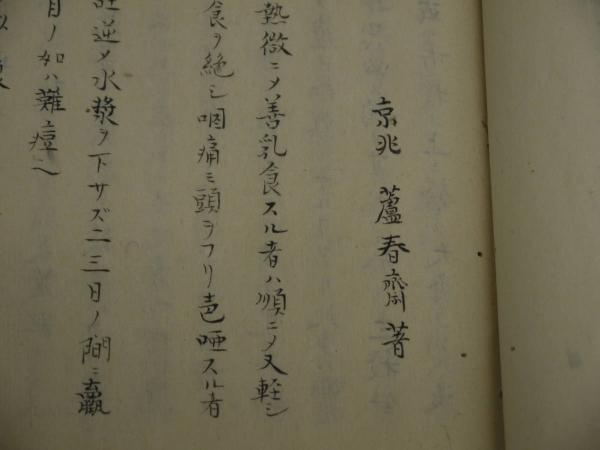 京兆 蘆春齋著
熱微ニメ善乳食スル者ハ順ニメ又軽シ
食ヲ絶シ咽痛ミ頭ヲフリ声唖スル者
吐逆メ水漿ヲ下サズ二三日ノ間ニ羸
目ノ如ハ難痘